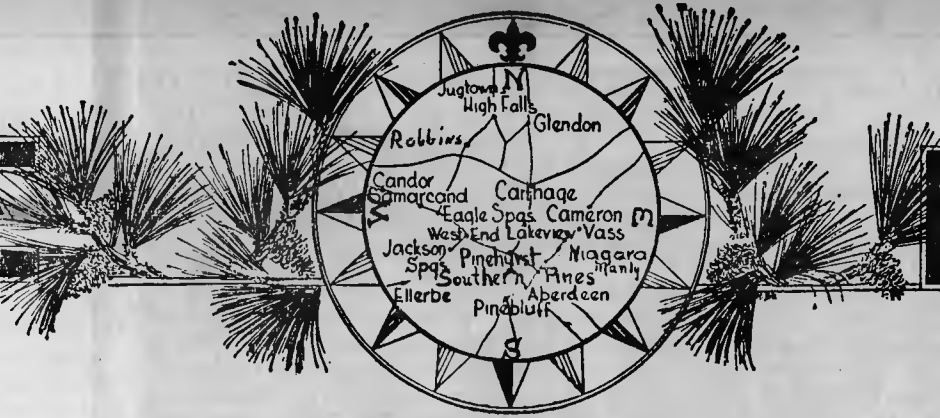 N
Jugtown
High Falls
Glendon
Robbins
Candor
Samarcand
Carthage
Eagle Spgs. Cameron E
W
West End Lakeview Vass
Jackson Spgs
Pinehurst
Niagara
Manly
Southern Pines
Ellerbe
Aberdeen
Pinebluff
S